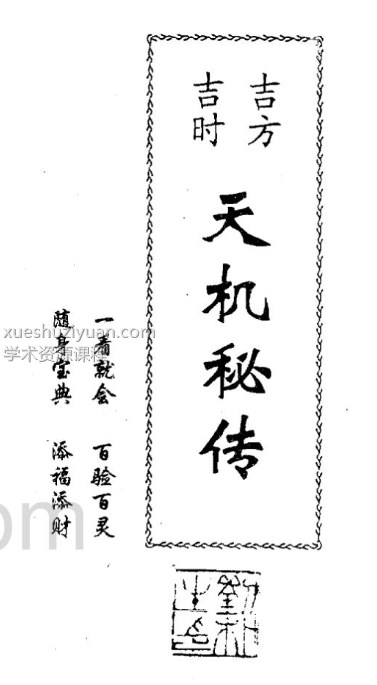 吉方
吉时
天机秘传
一看就会 百验百灵
随身宝典 添福添财
xueshuziyuan.com
学术资源课程
om